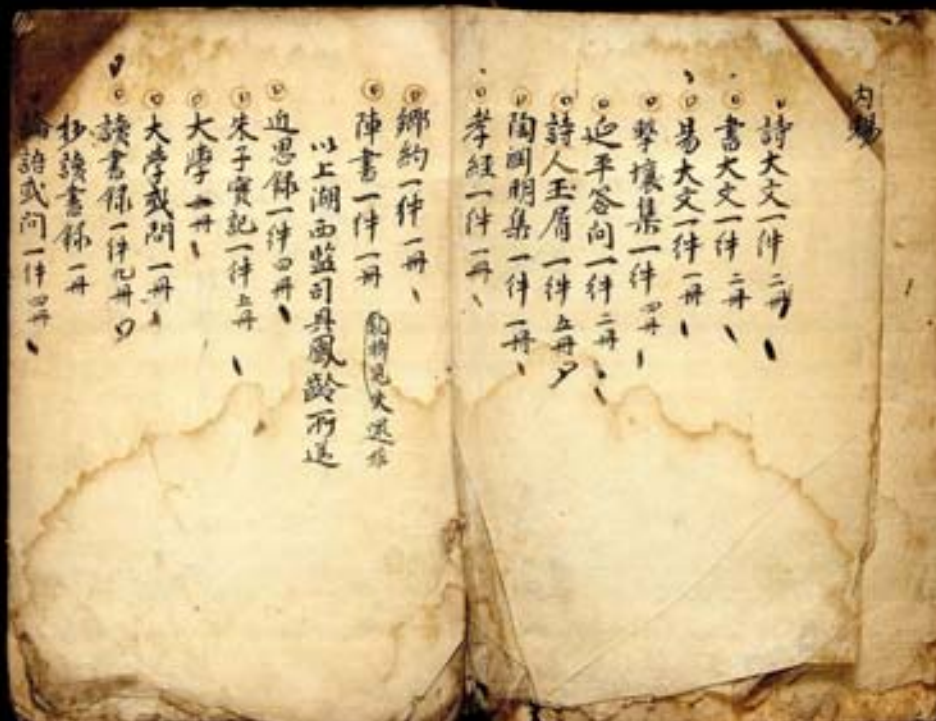 內賜
詩大文一件 二冊
書大文一件 二冊
易大文一件 一冊
擊壤集一件 四冊
延平答問一件 二冊
詩人玉屑一件 五冊
陶淵明集一件 一冊
孝経一件 一冊
鄉約一件 一冊
陣書一件 一冊
以上湖西監司具鳳齡所送
近思錄一件 四冊
朱子實記一件 五冊
大學 一冊
大學或問 一冊
讀書録一件 九冊
抄讀書録 一冊
論語或問一件 四冊